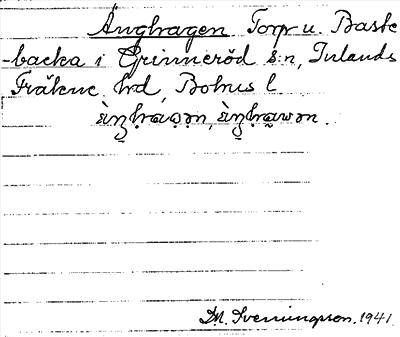 Änghagen Torp u. Baste
-backa i Grinneröd s:n, Inlands
Fräkne hd, Bohus l.
D.M. Svenningson. 1941.